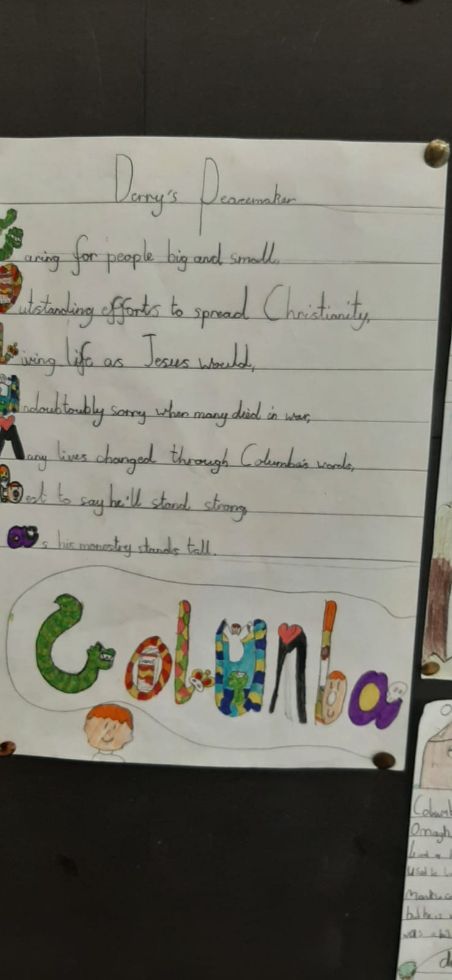 Derry's Peacemaker
Caring for people big and small,
Outstanding efforts to spread Christianity,
Living life as Jesus would,
Undoubtoubly sorry when many died in war,
Many lives changed through Columba's words,
Best to say he'll stand strong
as his monestry stands tall.
Columba
Omagh